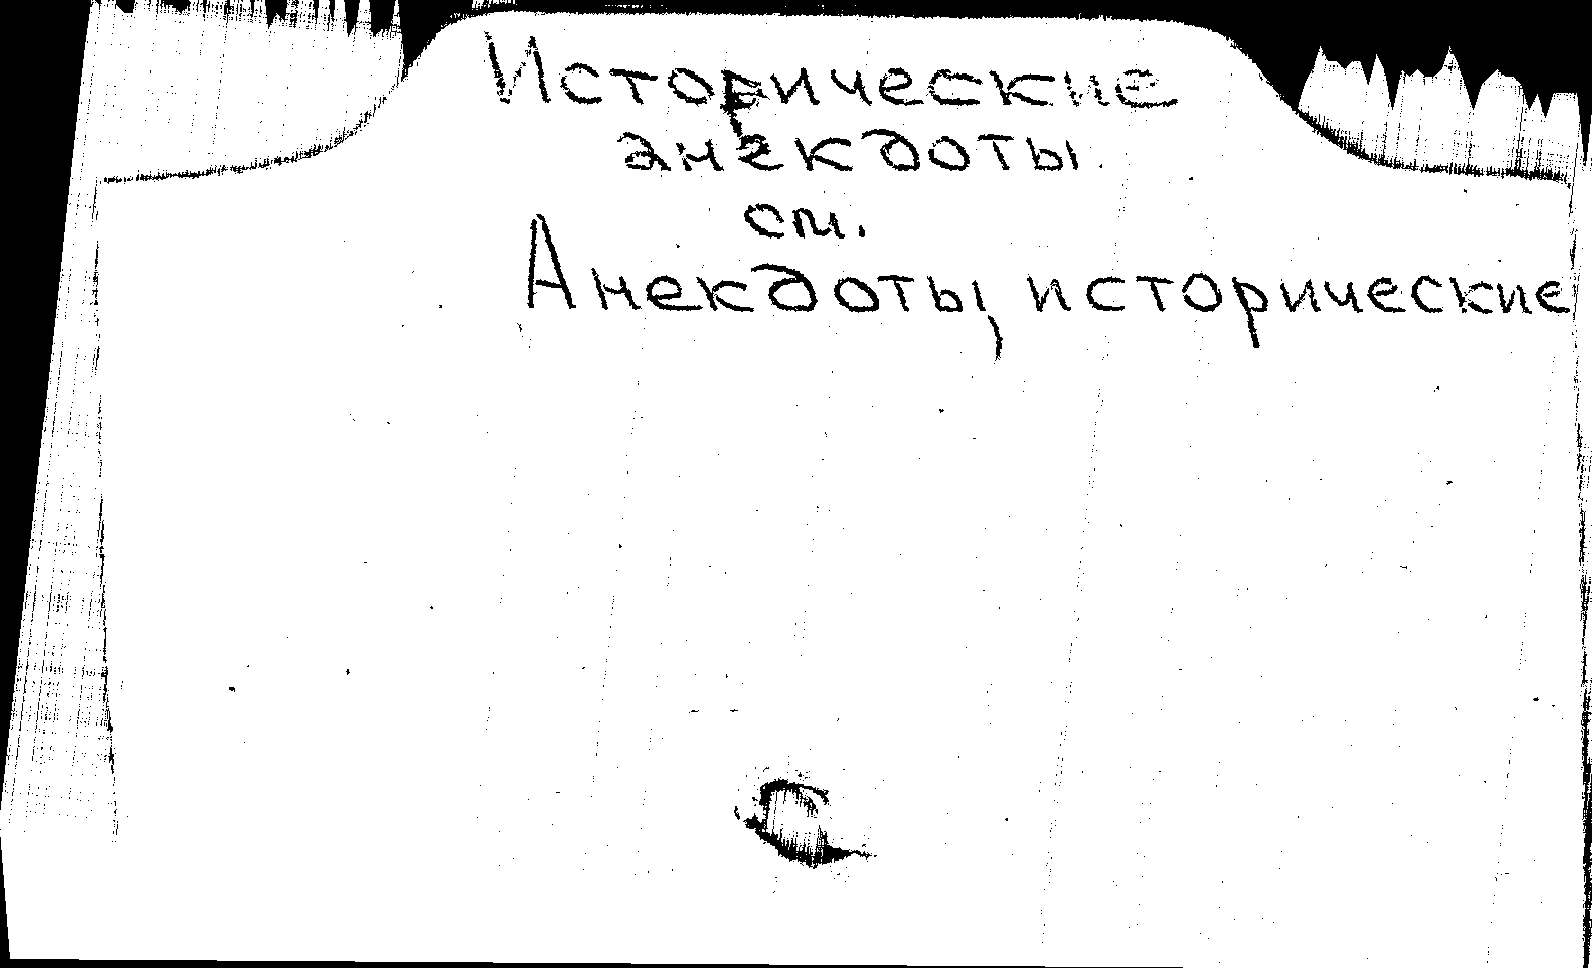 Исторические
анекдоты
см.
Анекдоты, исторические